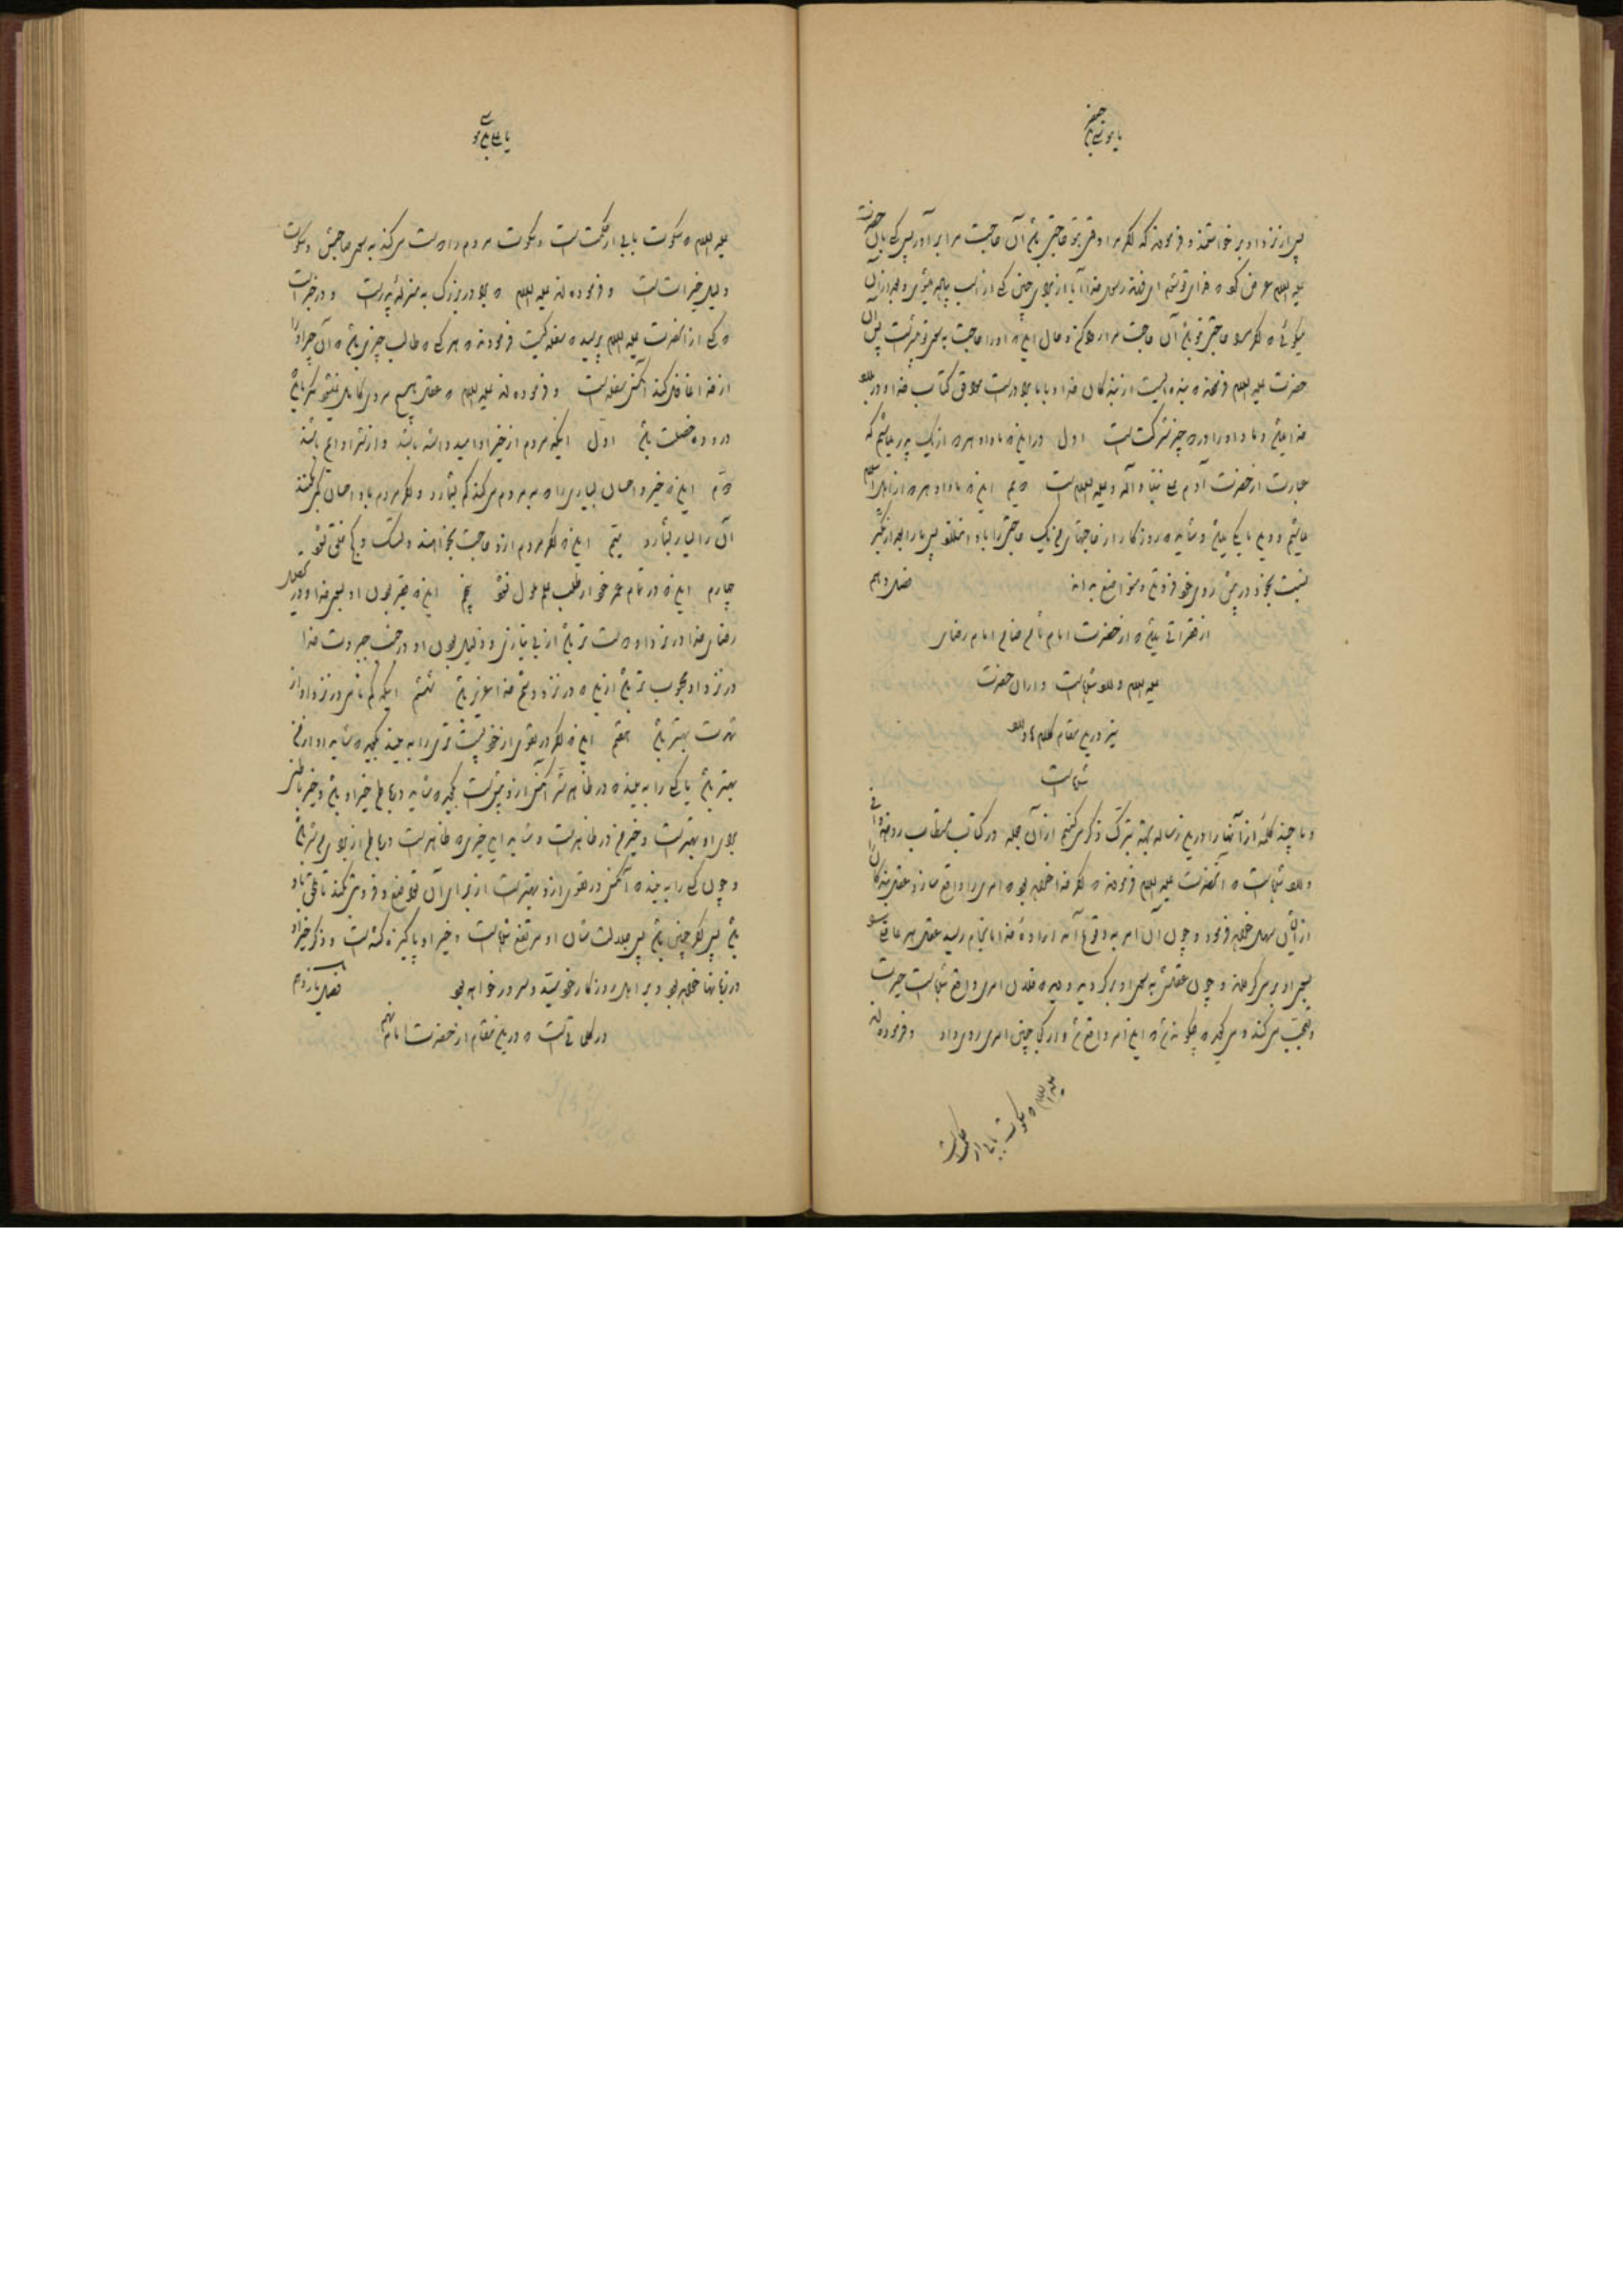 یا موسی بن جعفر
پس از نزد او برخواستند و فرمودند که اگر مرا و قتی حاجتی باشد آن حاجت مرا برآور پس کسی بآن حضرت
علیه السلام عرض کرد که فدای تو شوم ای فرزند رسول خدا آیا از برای چنین کسی از اسب پیاده میشوی و بعد از آن
میگوئی که اگر مرا حاجتی باشد آن حاجت مرا روا کن و حال اینکه او را حاجت بسوی تو بیشتر است پس آن
حضرت علیه السلام فرمودند که بنده ایست از بندگان خدا و با ما برادر است موافق کتاب خدا و در بلاد
خدا میباشد و ما و او را در دو چیز شرکت است اول در اینکه ما و او هر دو از یک پدر میباشیم که
عبارت از حضرت آدم علی نبینا و آله و علیه السلام است دویم اینکه ما و او هر دو از اهل اسلام
میباشیم و دین ما یکی میباشد و شاید که روزگار از حاجتهای ما یک حاجتی را باو اندازد پس ما را بعد از تکبر
نسبت بخود در پیش روی خود فروتن و متواضع بداند فصل دهم
از فقراتی میباشد که از حضرت امام ثامن ضامن امام رضای
علیه السلام و الثناست و از آن حضرت
نیز در این مقام کلام
بسیار است
و ما چند کلمه از آنها را در این رساله بجهة تبرک ذکر میکنیم از آن جمله در کتاب مستطاب روضه وافی
است که آنحضرت علیه السلام فرمودند که اگر خدا خواهد که امری را واقع سازد عقل بندگان را
از ایشان سلب خواهد فرمود و چون آن امر به وقوع آمد و ارادهٔ خدا بانجام رسید عقل هر عاقلی
بسوی او بر میگرداند و چون عقلش بسوی او برگردید و دید که فلان امری واقع شده است حیرت
و تعجب میکند و میگوید که چگونه شد که این امر واقع شد و از کجا چنین امری روی داد و فرموده اند
علیه السلام که سکوت بابی از حکمت است
یا علی بن موسی
علیه السلام که سکوت بابی از حکمت است و سکوت مردم را دوست میکند به سوی صاحبش و سکوت
دلیل خیرات است و فرموده اند علیه السلام که برادر بزرگ به منزلهٔ پدر است و در خبر است
که کسی از آنحضرت علیه السلام پرسید که سفله کیست فرمودند که هر کسی که طالب چیزی باشد که آن چیز او را
از خدا غافل کند آنکس سفله است و فرموده اند علیه السلام که عقل هیچ مردی کامل نمیشود مگر اینکه
در او ده خصلت باشد اول اینکه مردم از خیر او امید داشته باشند و از شر او ایمن باشند
دویم اینکه خیر و احسان بسیاری را که به مردم میکند کم بشمارد و اگر مردم باو احسان کمی کنند
آن را بسیار بشمارد سیم اینکه اگر مردم از او حاجت بخواهند دلتنگ و کج خلق نشود
چهارم اینکه در تمام عمر خود از طلب علم ملول نشود پنجم اینکه فقیر بودن او بسوی خدا و در تحصیل
رضای خدا در نزد او دوست تر باشد از بی نیازی و ذلیل بودن او در جنب جبروت خدا
در نزد او محبوب تر باشد از اینکه در نزد دشمن خدا عزیز باشد ششم اینکه گم نامی در نزد او از
شهرت بهتر باشد هفتم اینکه اگر در تقوی از خود پست تری را به بیند بگوید که شاید او از من
بهتر باشد یا کسی را به بیند که در ظاهر شر آنکس از او بیش است بگوید که شاید در باطن خیر او باشد و خیر باطنی
برای او بهتر است و خیر من در ظاهر است و شاید این خیری که ظاهر است در باطن از برای من شر باشد
و چون کسی را به بیند که آنکس در تقوی از او بهتر است از برای آن تواضع و فروتنی کند تا ملحق باو
باشد پس اگر چنین باشد پس جلالت شان او مرتفع شده است و خیر او پاکیزه گشته است و ذکر خیر او
در زبانها خواهد بود و بر اهل روزگار خود سید و سرور خواهد بود فصل یازدهم
در کلماتی است که در این مقام از حضرت امام نهم